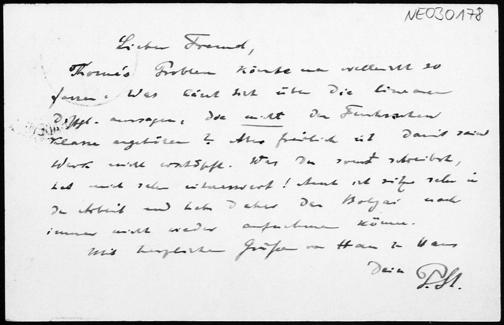 NE030178
Lieber Freund,
Thomé's Problem könnte man vielleicht so
fassen: Was lässt sich über die linearen
Diffgl. aussagen, die nicht der Fuchsschen
Klasse angehören? Aber freilich ist damit sein
Werk nicht erschöpft. Was Du sonst schreibst,
hat mich sehr interessiert! Auch ich sitze sehr in
der Arbeit und habe daher den Bolyai noch
immer nicht wieder aufnehmen können.
Mit herzlichen Grüßen von Haus zu Haus
Dein P. St.